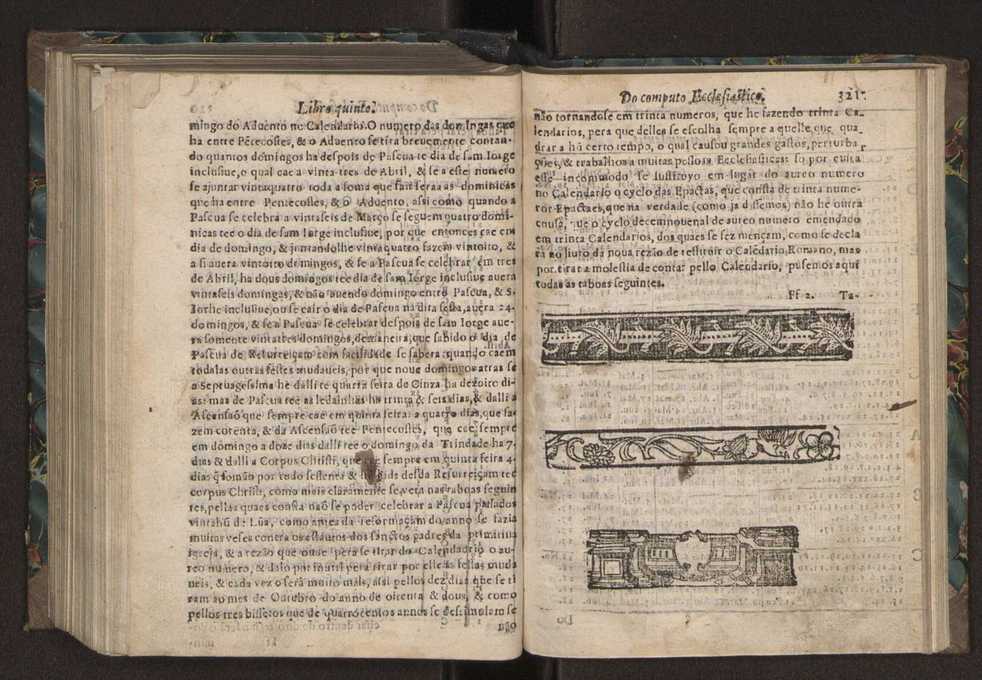 Libro quinto.
mingo do Aduento no Calendario. O numero das domingas que
ha entre Pẽtecostes, & o Aduento se tira breuemente contan-
do quantos domingos ha despois de Pascua te dia de sam Iorge
inclusiue, o qual cae a vinta tres de Abril, & se a este numero
se ajuntar vintaquatro toda a soma que fait seraa as dominicas
que ha entre Pentecostes, & o Aduento, assi como quando a
Pascua se celebra a vintaseis de Março se seguem quatro domi-
nicas tee o dia de sam Iorge inclusiue, por que entonces cae em
dia de domingo, & juntandolhe vintaquatro fazem vintoito, &
a si auera vintoito domingos, & se a Pascua se celebrar em tres
de Abril, ha dous domingos tee dia de sam Iorge inclusiue auera
vintaseis domingas, & não auendo domingo entre Pascua, & S.
Iorge inclusiue, ou se cair o dia de Pascua na dita festa, auera 24.
domingos, & se a Pascua se celebrar despois de sam Iorge aue-
ra somente vintatres domingos, de maneira, que sabido o dia de
Pascua de Resurreiçaõ com facilidade se sabera quando caem
todalas outras festes mudaueis, por que noue domingos atras se
a Septuagessima he dalli te quarta feira de Cinza ha dezoito di-
as: mas de Pascua tee as ledainhas ha trinta & seis dias, & dalli a
Ascensaõ que sempre cae em quinta feira a quatro dias, que fa-
zem corenta, & da Ascensaõ tee Pentecostes, que cae sempre
em domingo a doze dias dalli tee o domingo da Trindade ha 7.
dias & dalli a Corpus Christi, que he sempre em quinta feira 4.
dias q̃ somão por todo sessenta & dias desda Resurreiçam tee
corpus Christi, como mais claramente se vera nas taboas seguin
tes, pellas quaes consta naõ se poder celebrar a Pascua passados
vintahũ de Lũa, como antes da reformaçam do anno se fazia
muitas veses contra os estautos dos sanctos padres da primitiua
igreja, & a rezão que ouue pera se tirar do Calendario o au-
reo numero, & dalo por inutil pera tirar por elle as festas muda
ueis, & cada vez o será muito mais, assi pellos dez dias que se ti
ram ao mes de Outubro do anno de oitenta & dous, & como
pellos tres bissetos que de quatrocentos annos se dessimulam se
não
Do computo Ecclesiastico.
321.
não tornandose em trinta numeros, que he fazendo trinta Ca-
lendarios, pera que delles se escolha sempre aquelle que qua-
drar a hũ certo tempo, o qual causou grandes gastos, perturba
ções, & trabalhos a muitas pessoas Ecclesiasticas so por cuita
este incommodo se sustituyo em lugar do aureo numero
no Calendario o cyclo das Epactas, que consta de trinta nume-
ros Epactaes, que na verdade (como ja dissemos) não he outra
cousa, que o cyclo decemnouenal de aureo numero emendado
em trinta Calendarios, dos quaes se fez mençam, como se decla
ra no liuro da noua rezão de restituir o Calẽdario Romano, mas
por tirar a molestia de contar pello Calendario, pusemos aqui
todas as taboas seguintes.
Ff 2. Ta-